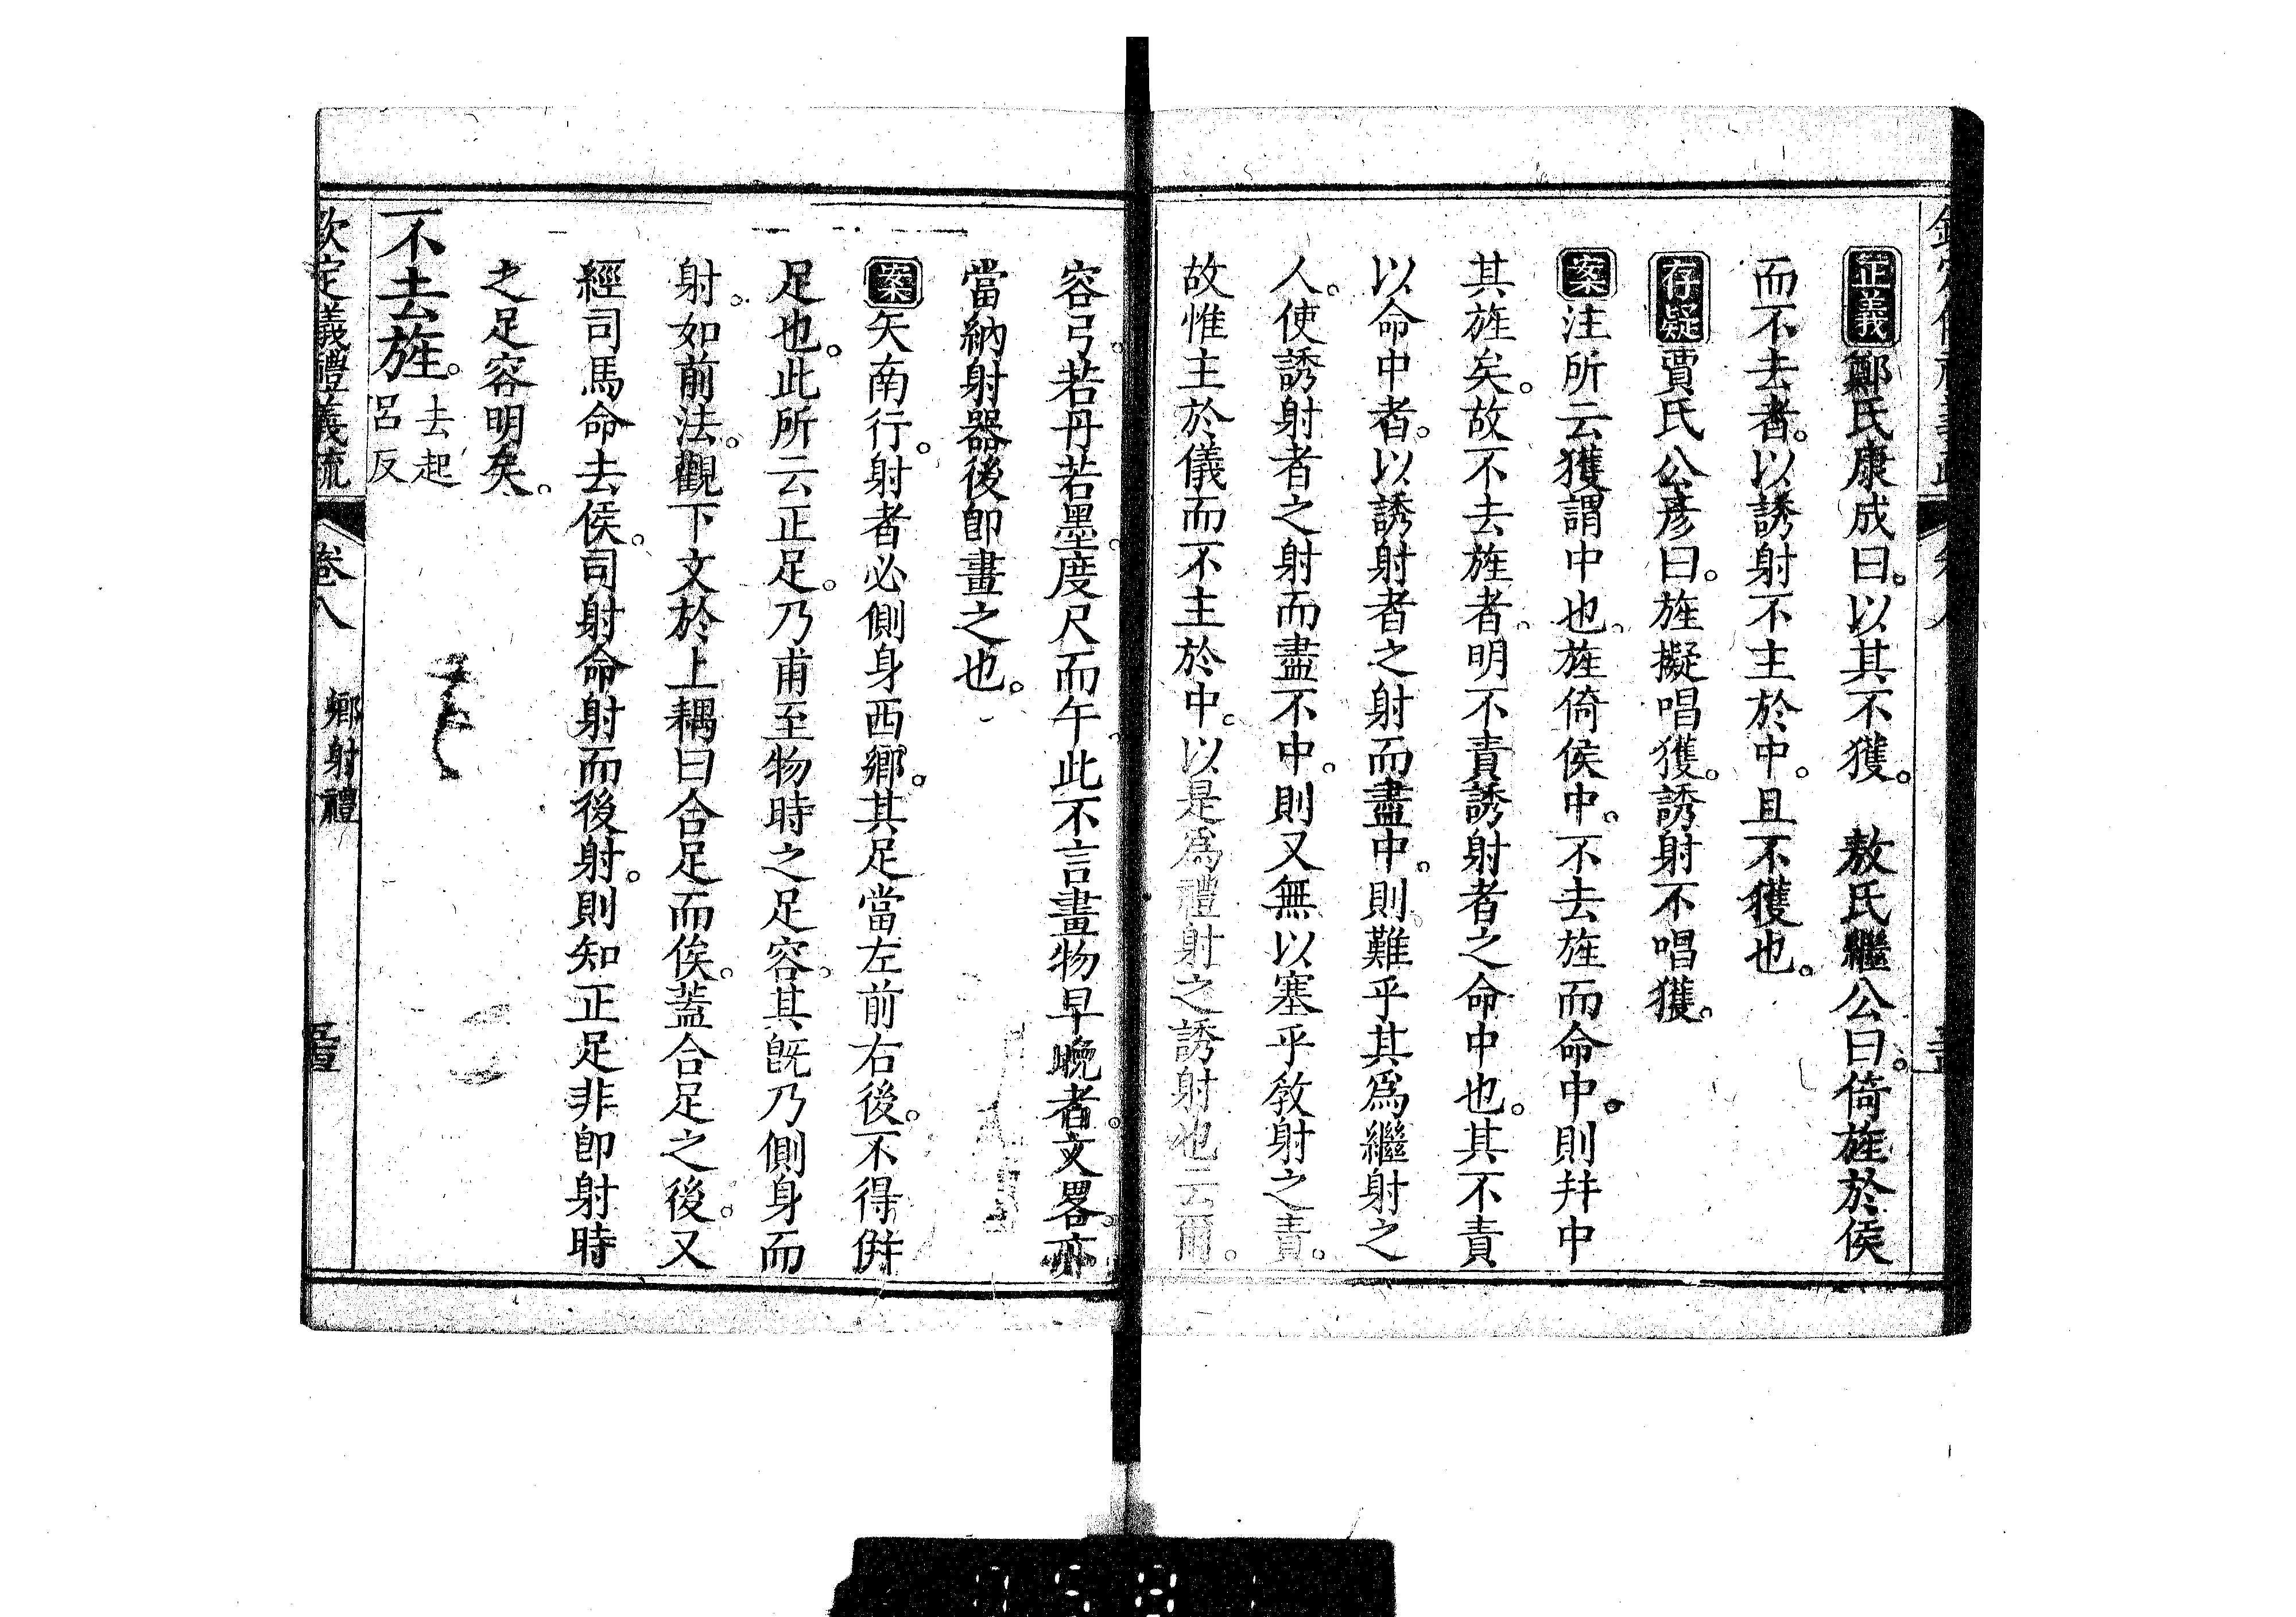 正義鄭氏康成曰。以其不獲。　敖氏繼公曰。倚旌於侯
而不去者。以誘射不主於中。且不獲也。
存疑賈氏公彥曰。旌擬唱獲。誘射不唱獲。
案注所云獲謂中也。旌倚侯中。不去旌而命中。則幷中
其旌矣。故不去旌者。明不責誘射者之命中也。其不責
以命中者。以誘射者之射而盡中。則難乎其爲繼射之
人。使誘射者之射而盡不中。則又無以塞乎教射之責。
故惟主於儀而不主於中。以是爲禮射之誘射也云爾。
容弓。若丹若墨。度尺而午。此不言畫物早晚者。文畧。亦
當納射器後卽畫之也。
案矢南行。射者必側身西鄉。其足當左前右後。不得倂
足也。此所云正足。乃甫至物時之足容。其旣乃側身而
射。如前法。觀下文於上耦曰合足而俟。蓋合足之後。又
經司馬命去侯。司射命射而後射。則知正足非卽射時
之足容明矣。
不去旌。去起呂反
欽定儀禮義疏 卷八 鄉射禮